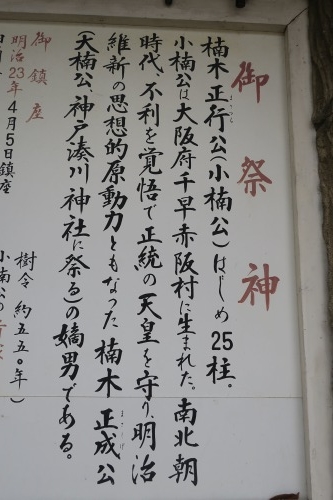 御祭神
楠木正行公(小楠公)はじめ25柱。
小楠公は大阪府千早赤阪村に生まれた。南北朝
時代、不利を覚悟で正統の天皇を守り、明治
維新の思想的原動力ともなった楠木正成公
(大楠公、神戸湊川神社に祭る)の嫡男である。
御鎮座
明治23年4月5日鎮座
樹令 約五五〇年)
小楠公の